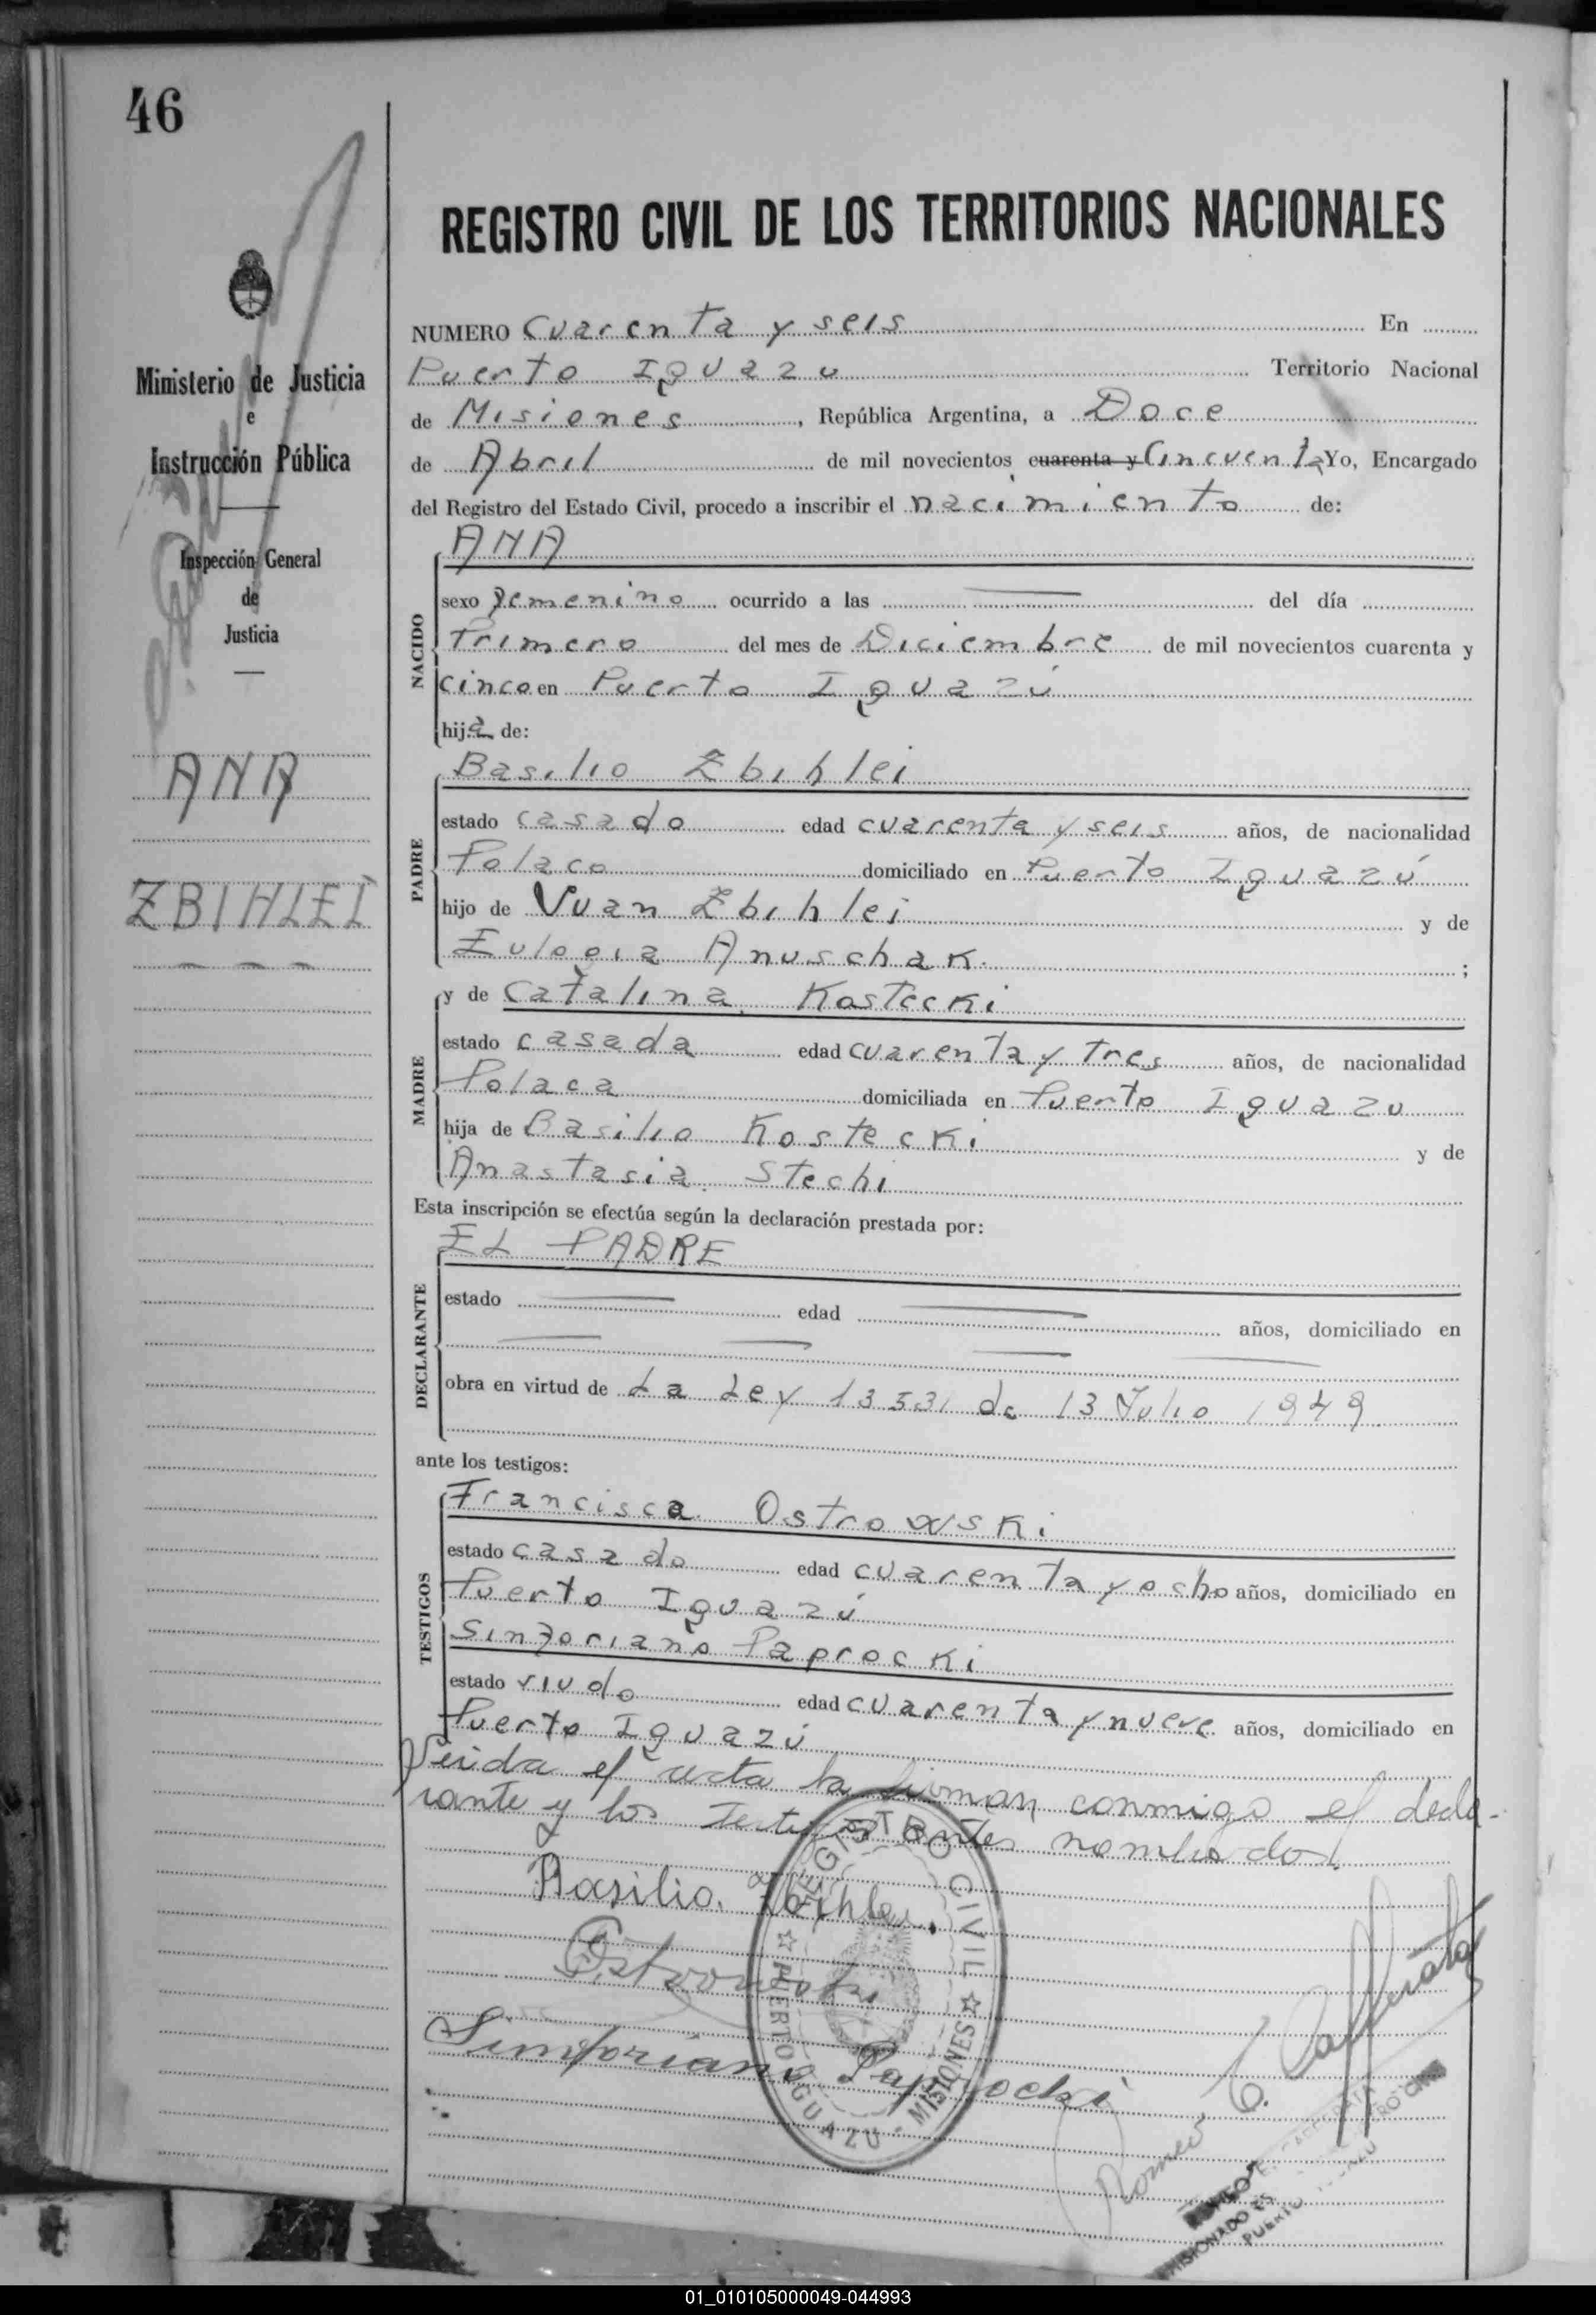 46
REGISTRO CIVIL DE LOS TERRITORIOS NACIONALES
Ministerio de Justicia
e
Instrucción Pública
Inspección General
de
Justicia
ANA
ZBIHLEI
NUMERO Cuarenta y seis En
Puerto Iguazu Territorio Nacional
de Misiones, República Argentina, a Doce
de Abril de mil novecientos cuarenta y Cincuenta Yo, Encargado
del Registro del Estado Civil, procedo a inscribir el nacimiento de:
NACIDO
ANA
sexo femenino ocurrido a las del día
Primero del mes de Diciembre de mil novecientos cuarenta y
cinco en Puerto Iguazú
hija de:
PADRE
Basilio Zbihlei
estado casado edad cuarenta y seis años, de nacionalidad
Polaco domiciliado en Puerto Iguazú
hijo de Juan Zbihlei y de
Eulogia Anuschak. ;
MADRE
y de Catalina Kostecki
estado casada edad cuarenta y tres años, de nacionalidad
Polaca domiciliada en Puerto Iguazu
hija de Basilio Kostecki y de
Anastasia Stechi
Esta inscripción se efectúa según la declaración prestada por:
DECLARANTE
EL PADRE
estado edad años, domiciliado en
obra en virtud de La Ley 13531 de 13 Julio 1949
ante los testigos:
TESTIGOS
Francisca Ostrowski
estado casado edad cuarenta y ocho años, domiciliado en
Puerto Iguazú
Sinforiano Paprocki
estado viudo edad cuarenta y nueve años, domiciliado en
Puerto Iguazú
Leida el acta la firman conmigo el decla-
rante y los testigos antes nombrados.
Basilio. Zbihlei.
Ostrowski
Simforiano Paprocki
REGISTRO CIVIL
PUERTO IGUAZU - MISIONES
Romeo E. Cafferata
01_010105000049-044993